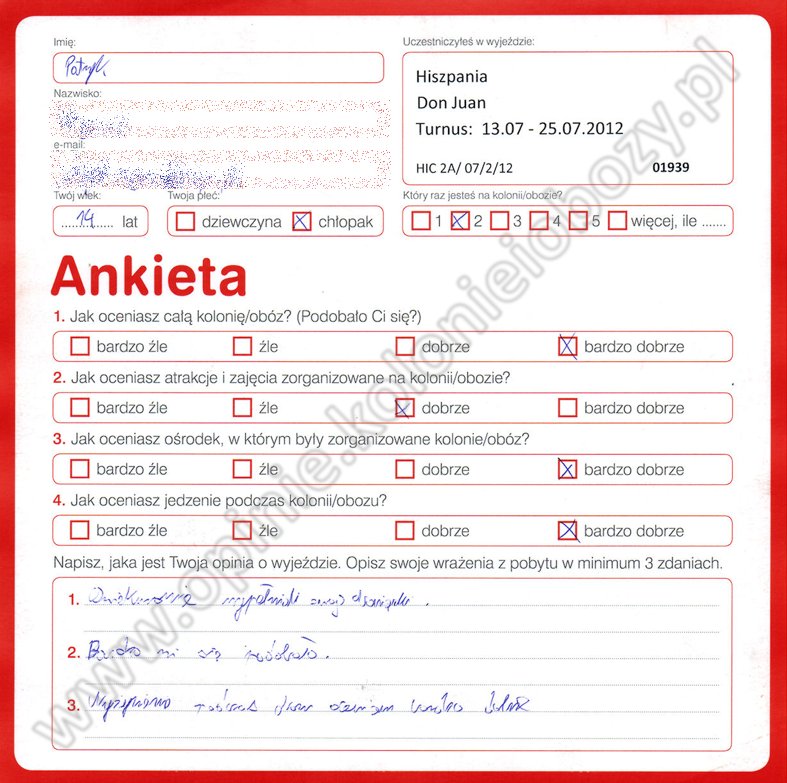 Imię:
Patryk
Uczestniczyłeś w wyjeździe:
Hiszpania
Don Juan
Turnus: 13.07 - 25.07.2012
HIC 2A/ 07/2/12 01939
Nazwisko:
e-mail:
Twój wiek:
14 lat
Twoja płeć:
dziewczyna chłopak
Który raz jesteś na kolonii/obozie?
1 2 3 4 5 więcej, ile .......
Ankieta
1. Jak oceniasz całą kolonię/obóz? (Podobało Ci się?)
bardzo źle źle dobrze bardzo dobrze
2. Jak oceniasz atrakcje i zajęcia zorganizowane na kolonii/obozie?
bardzo źle źle dobrze bardzo dobrze
3. Jak oceniasz ośrodek, w którym były zorganizowane kolonie/obóz?
bardzo źle źle dobrze bardzo dobrze
4. Jak oceniasz jedzenie podczas kolonii/obozu?
bardzo źle źle dobrze bardzo dobrze
Napisz, jaka jest Twoja opinia o wyjeździe. Opisz swoje wrażenia z pobytu w minimum 3 zdaniach.
1. wypełniali swoje obowiązki.
2. Bardzo mi się podobało.
3. Wyżywienie podczas oceniam bardzo
www.opinie.kolonieiobozy.pl